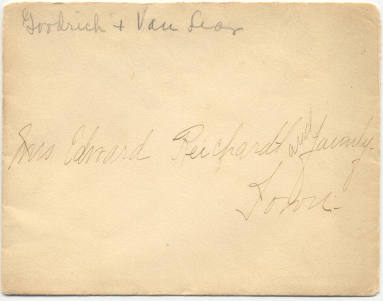 Goodrich + Van Sear
Mrs Edward Reichardt and family
Town